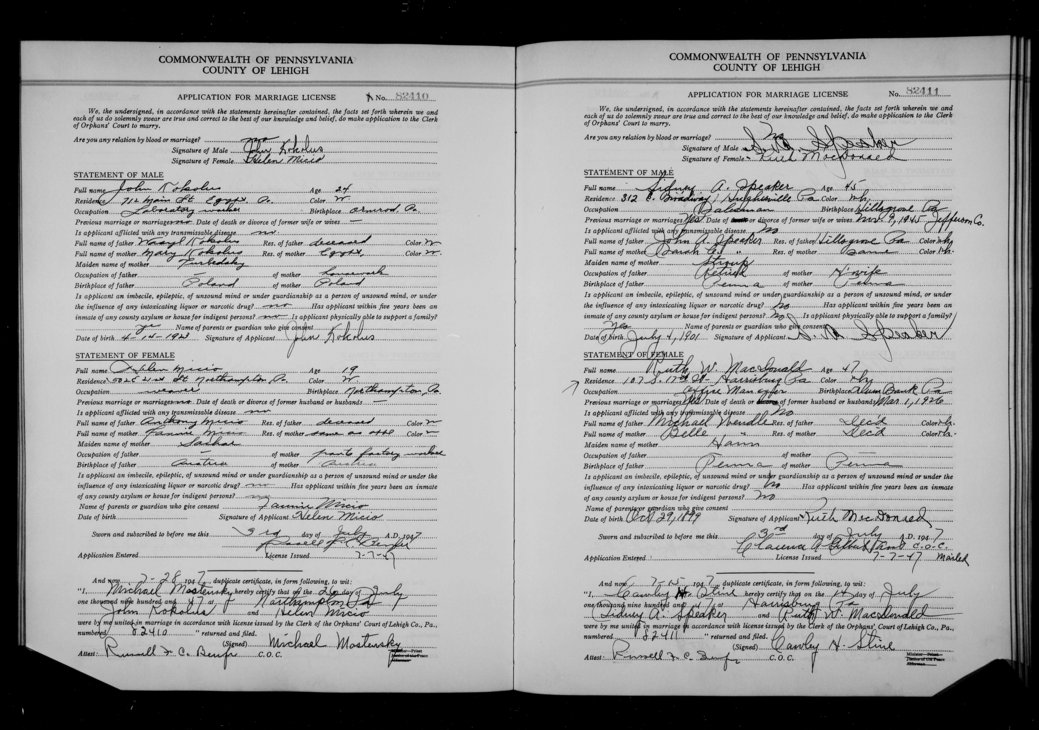 COMMONWEALTH OF PENNSYLVANIA
COUNTY OF LEHIGH
APPLICATION FOR MARRIAGE LICENSE No. 82410
We, the undersigned, in accordance with the statements hereinafter contained, the facts set forth wherein we and
each of us do solemnly swear are true and correct to the best of our knowledge and belief, do make application to the Clerk
of Orphans' Court to marry.
Are you any relation by blood or marriage? no
Signature of Male John Kokolus
Signature of Female Helen Micio
STATEMENT OF MALE
Full name John Kokolus Age 24
Residence 712 Main St. Egypt, Pa. Color W
Occupation Laboratory worker Birthplace Ormrod, Pa.
Previous marriage or marriages no Date of death or divorce of former wife or wives
Is applicant afflicted with any transmissible disease no
Full name of father Wasyl Kokolus Res. of father deceased Color W
Full name of mother Mary Kokolus Res. of mother Egypt Color W
Maiden name of mother
Occupation of father — of mother housework
Birthplace of father Poland of mother Poland
Is applicant an imbecile, epileptic, of unsound mind or under guardianship as a person of unsound mind, or under
the influence of any intoxicating liquor or narcotic drug? no Has applicant within five years been an
inmate of any county asylum or house for indigent persons? no Is applicant physically able to support a family?
yes Name of parents or guardian who give consent
Date of birth 4-14-1923 Signature of Applicant John Kokolus
STATEMENT OF FEMALE
Full name Helen Micio Age 19
Residence St Northampton, Pa. Color W
Occupation weaver Birthplace Northampton, Pa.
Previous marriage or marriages no Date of death or divorce of former husband or husbands —
Is applicant afflicted with any transmissible disease no
Full name of father Anthony Micio Res. of father deceased Color W
Full name of mother Fannie Micio Res. of mother same as appl Color
Maiden name of mother
Occupation of father — of mother pants factory worker
Birthplace of father Austria of mother Austria
Is applicant an imbecile, epileptic, of unsound mind or under guardianship as a person of unsound mind or under the
influence of any intoxicating liquor or narcotic drug? no Has applicant within five years been an inmate
of any county asylum or house for indigent persons? no
Name of parents or guardian who give consent Fannie Micio
Date of birth Signature of Applicant Helen Micio
Sworn and subscribed to before me this 3rd day of July A.D. 1947
Application Entered License Issued 7-7-47
And now 7-28 1947 duplicate certificate, in form following, to wit:
"I, Michael Mostensky hereby certify that on the 26 day of July
one thousand nine hundred and 47 at Northampton Pa
John Kokolus and Helen Micio
were by me united in marriage in accordance with license issued by the Clerk of the Orphans' Court of Lehigh Co., Pa.,
numbered 82410 " returned and filed.
(Signed) Michael Mostensky
Attest C.O.C.
COMMONWEALTH OF PENNSYLVANIA
COUNTY OF LEHIGH
APPLICATION FOR MARRIAGE LICENSE No. 82411
We, the undersigned, in accordance with the statements hereinafter contained, the facts set forth wherein we and
each of us do solemnly swear are true and correct to the best of our knowledge and belief, do make application to the Clerk
of Orphans' Court to marry.
Are you any relation by blood or marriage? No
Signature of Male Speaker
Signature of Female Ruth MacDonald
STATEMENT OF MALE
Full name Sidney A. Speaker Age 45
Residence 312 E. Broadway, Hughesville Pa Color Wh.
Occupation Salesman Birthplace Hillsgrove Pa
Previous marriage or marriages Yes Date of death or divorce of former wife or wives Nov. 9, 1945 Jefferson Co.
Is applicant afflicted with any transmissible disease No
Full name of father John A. Speaker Res. of father Hillsgrove Pa Color Wh
Full name of mother Sarah C. " Res. of mother Same Color Wh.
Maiden name of mother Stroup
Occupation of father Retired of mother H'wife
Birthplace of father Penna of mother Penna
Is applicant an imbecile, epileptic, of unsound mind, or under guardianship as a person of unsound mind, or under
the influence of any intoxicating liquor or narcotic drug? No Has applicant within five years been an
inmate of any county asylum or house for indigent persons? No Is applicant physically able to support a family?
Yes Name of parents or guardian who give consent
Date of birth July 4, 1901 Signature of Applicant Speaker
STATEMENT OF FEMALE
Full name Ruth W. MacDonald Age 47
Residence 107 S. 17th St Harrisburg Pa Color Wh
Occupation Office Manager Birthplace Bank Pa
Previous marriage or marriages Yes Date of death or divorce of former husband or husbands Mar 1, 1926
Is applicant afflicted with any transmissible disease No
Full name of father Michael Wendle Res. of father Dec'd Color Wh.
Full name of mother Belle " Res. of mother Dec'd Color Wh.
Maiden name of mother Hann
Occupation of father — of mother —
Birthplace of father Penna of mother Penna
Is applicant an imbecile, epileptic, of unsound mind, or under guardianship as a person of unsound mind or under the
influence of any intoxicating liquor or narcotic drug? No Has applicant within five years been an inmate
of any county asylum or house for indigent persons? No
Name of parents or guardian who give consent
Date of birth Oct 29, 1899 Signature of Applicant Ruth MacDonald
Sworn and subscribed to before me this 3rd day of July A.D. 1947
C.O.C.
Application Entered License Issued 7-7-47 Mailed
And now 7-15 1947 duplicate certificate, in form following, to wit:
"I, Cawley H. Stine hereby certify that on the 14 day of July
one thousand nine hundred and 47 at Harrisburg Pa
Sidney A. Speaker and Ruth W. Macdonald
were by me united in marriage in accordance with license issued by the Clerk of the Orphans' Court of Lehigh Co., Pa.,
numbered 82411 " returned and filed.
(Signed) Cawley H. Stine
Attest C.O.C.